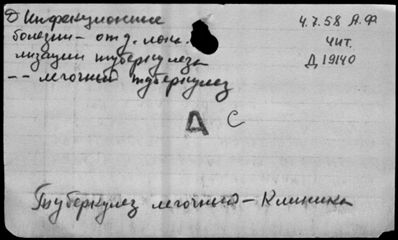 Инфекционные
болезни - отд. лока-
лизации туберкулеза
-- легочный туберкулез
4.7.58 А.Ф
Чит.
Д19140
Д С
Туберкулез легочный - Клиника